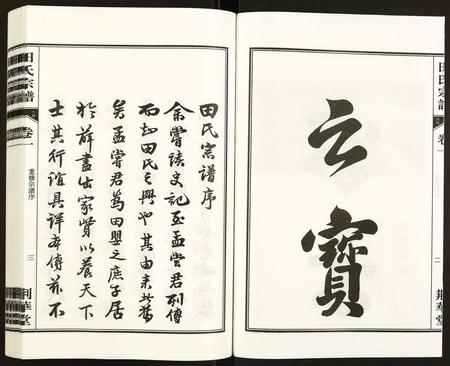 田氏宗譜
卷一
二
荆華堂
云寶
田氏宗譜序
余嘗讀史記至孟嘗君列傳
而知田氏之興也其由來舊
矣孟嘗君為田嬰之庶子居
於薛盡出家資以養天下
士其行誼具詳本傳茲不
田氏宗譜
卷一
重修宗譜序
三
荆華堂